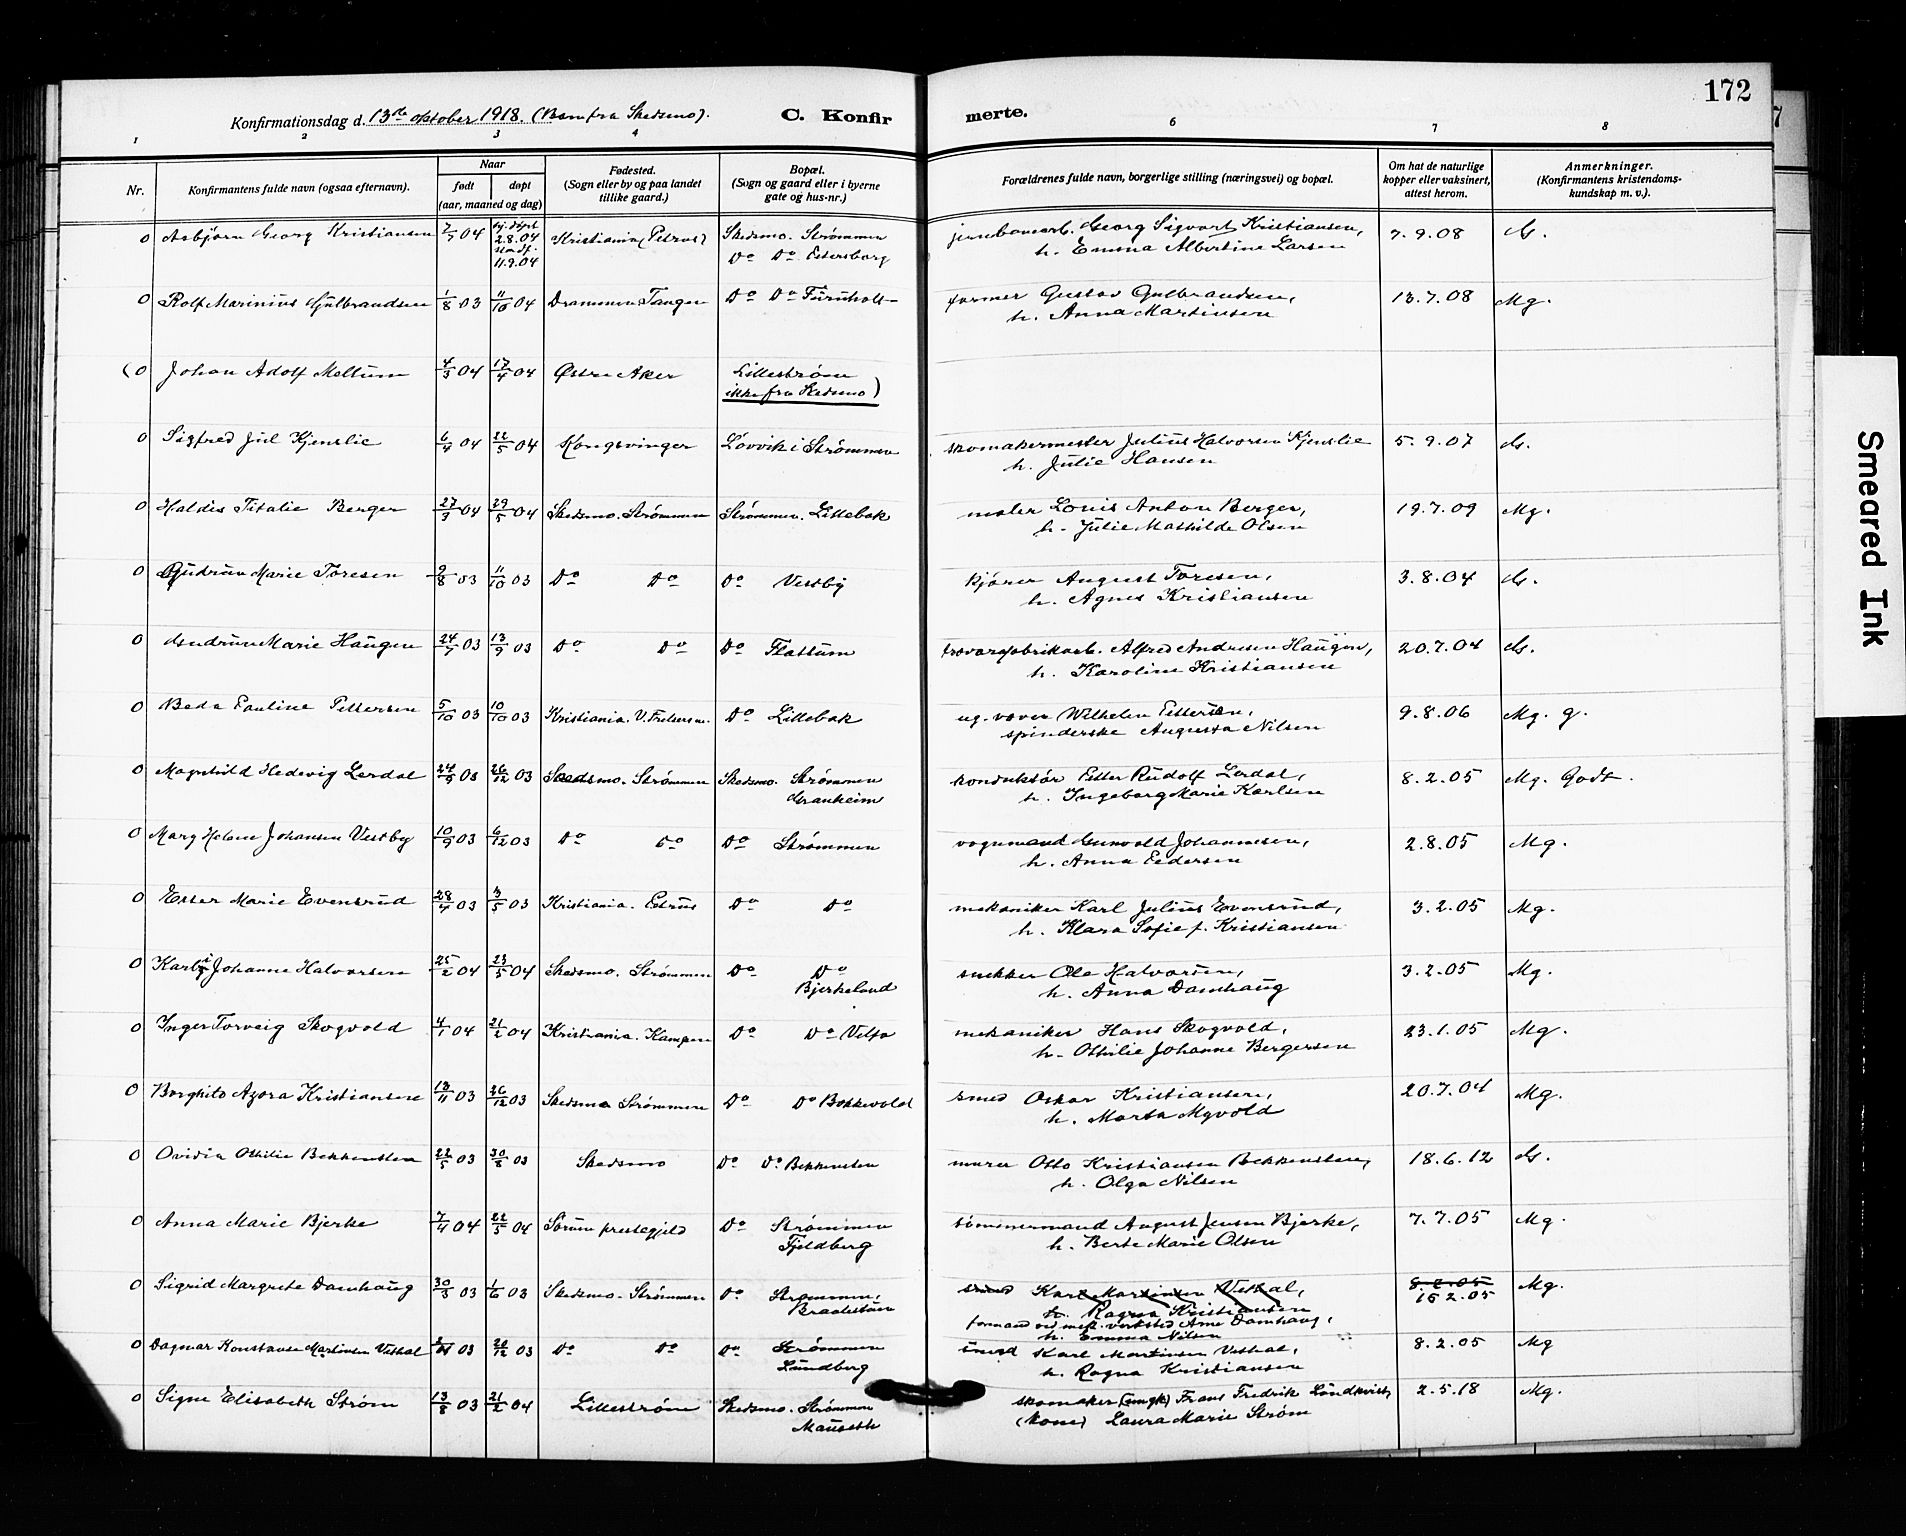 172
Konfirmationsdag d. 13de oktober 1918. (Barn fra Skedsmo).
C. Konfirmerte.
1 2 3 4 6 7 8
Nr.
Konfirmantens fulde navn (ogsaa efternavn).
Naar
født døpt
(aar, maaned og dag)
Fødested.
(Sogn eller by og paa landet
tillike gaard.)
Bopæl.
(Sogn og gaard eller i byerne
gate og hus-nr.)
Forældrenes fulde navn, borgerlige stilling (næringsvei) og bopæl.
Om hat de naturlige
kopper eller vaksinert,
attest herom.
Anmerkninger.
(Konfirmantens kristendoms-
kundskap m. v.).
0 Asbjørn Georg Kristiansen 7/7 04 hj.døpt 2.8.04 stadf. 11.9.04 Kristiania (Petrus) Skedsmo. Strømmen jernbanearb. Georg Sigvart Kristiansen, 7.9.08
Do Do Petersborg h. Emma Albertine Larsen
0 Rolf Marinius Gulbrandsen 1/8 03 11/10 04 Drammen Tangen Do Do Furuholt former Gustav Gulbrandsen, 13.7.08 Mg.
h. Anna Martinsen
(0 Johan Adolf Mellum 4/3 04 17/4 04 Østre Aker Lillestrøm
ikke fra Skedsmo)
0 Sigfred Jul Kjenslie 6/4 04 22/5 04 Kongsvinger Løvvik i Strømmen skomakermester Julius Halvorsen Kjenslie 5.9.07
h. Julie Hansen
0 Haldis Titalie Berger 27/3 04 29/5 04 Skedsmo. Strømmen Strømmen. Lillebak maler Louis Anton Berger, 19.7.09 Mg.
h. Julie Mathilde Olsen
0 Gudrun Marie Toresen 9/8 03 11/10 03 Do Do Do Vestby kjører August Toresen, 3.8.04
h. Agnes Kristiansen
0 Gudrun Marie Haugen 24/7 03 13/9 03 Do Do Do Flattum trævarefabrikarb. Alfred Andresen Haugen, 20.7.04
h. Karoline Kristiansen
0 Beda Pauline Pettersen 5/10 03 10/10 03 Kristiania. V. Frelsers m. Do Lillebak ug. væver Wilhelm Pettersen, 9.8.06 Mg. g.
spinderske Augusta Nilsen
0 Magnhild Hedevig Lerdal 24/9 03 26/12 03 Skedsmo. Strømmen Skedsmo. Strømmen konduktør Petter Rudolf Lerdal, 8.2.05 Mg. Godt.
Granheim h. Ingeborg Marie Karlsen
0 Mary Helene Johansen Vestby 10/9 03 6/12 03 Do Do Do Strømmen vognmand Gunvald Johannesen, 2.8.05 Mg.
h. Anna Pedersen
0 Ester Marie Evensrud 28/4 03 3/5 03 Kristiania. Petrus Do Do mekaniker Karl Julius Evensrud, 3.2.05 Mg.
h. Klara Sofie f. Kristiansen
0 Karly Johanne Halvorsen 25/2 04 23/5 04 Skedsmo. Strømmen Do Do snekker Ole Halvorsen, 3.2.05 Mg.
Bjerkelund h. Anna Damhaug
0 Inger Torveig Skogvold 4/1 04 21/2 04 Kristiania. Kampen Do Do mekaniker Hans Skogvold, 23.1.05 Mg.
h. Othilie Johanne Bergersen
0 Borghild Azora Kristiansen 13/11 03 26/12 03 Skedsmo Strømmen Do Do Bokkevold smed Oskar Kristiansen, 20.7.04 Mg.
h. Marta Myvold
0 Ovidia Othilie Bekkensten 22/5 03 30/8 03 Skedsmo Do Do Bekkensten murer Otto Kristiansen Bekkensten, 18.6.12
h. Olga Nilsen
0 Anna Marie Bjerke 7/4 04 22/5 04 Sørum prestegjeld Do Strømmen tømmermand August Jensen Bjerke, 7.7.05 Mg.
Fjeldberg h. Berte Marie Olsen
0 Sigrid Margrete Damhaug 30/3 03 1/6 03 Skedsmo. Strømmen Do Strømmen, smed Karl Martinsen Vestal, 8.2.05 Mg.
Braatestuen h. Ragna Kristiansen 15 2.05
formand ved mek. verksted Arne Damhaug,
h. Emma Nilsen
0 Dagmar Konstanse Martinsen Vestal 03 20/12 03 Do Do Do Strømmen smed Karl Martinsen Vestal, 8.2.05 Mg
Lundberg h. Ragna Kristiansen
0 Signe Elisabeth Strøm 13/8 03 21/2 04 Lillestrøm Skedsmo. Strømmen skomaker (ungk) Frans Fredrik Lundkvist, 2.5.18 Mg.
Mauseth (kone) Laura Marie Strøm
Smeared Ink